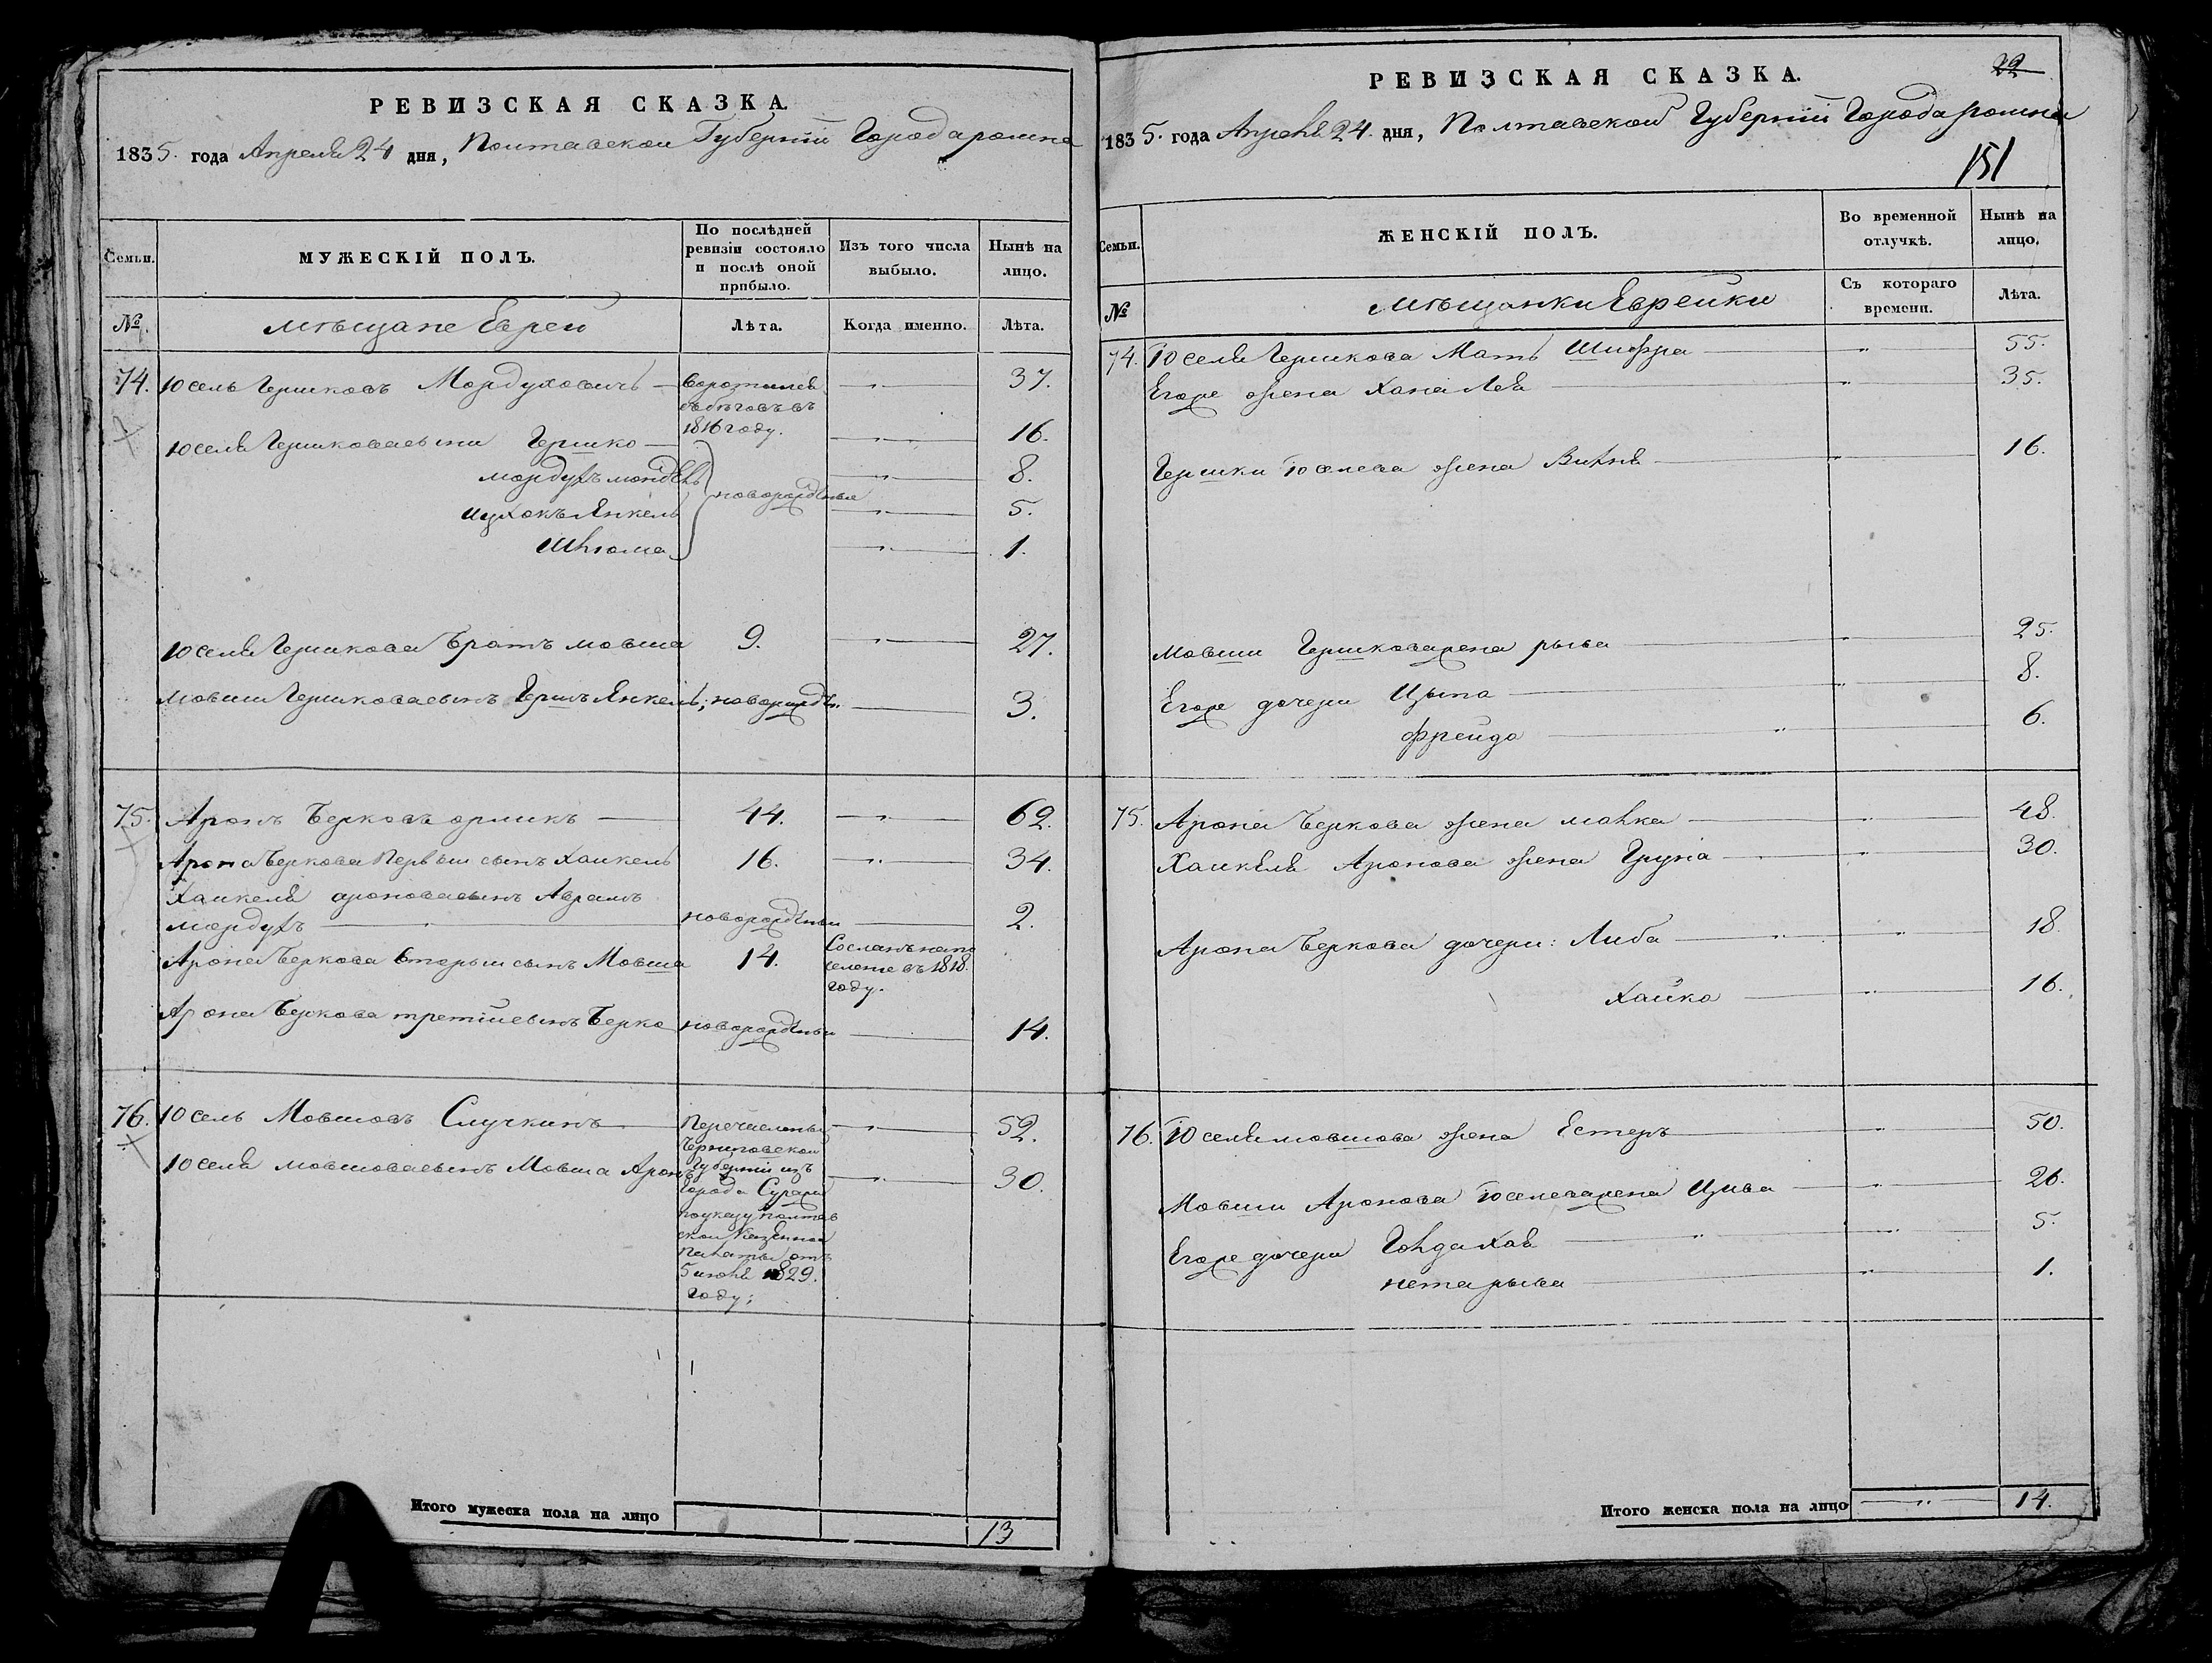 РЕВИЗСКАЯ СКАЗКА.
1835. года Апреля 24 дня, Полтавской Губерніи Города ромна
Семьи.
МУЖЕСКІЙ ПОЛЪ.
По послѣдней ревизіи состояло и послѣ оной прибыло.
Изъ того числа выбыло.
Нынѣ на лицо.
№
мѣщане Евреи
Лѣта.
Когда именно.
Лѣта.
74. Юсель Гершковъ Мордуховичь — воротился — „ — 37.
съ бѣговъ въ
1816 году.
Юселя Гершкова сыни Гершко — „ — 16.
мордухъ мендель — „ — 8.
новорожденые
ицхокъ Янкель — „ — 5.
Шлюома — „ — 1.
Юселя Гершкова братъ мовша 9. — „ — 27.
Мовши Гершкова сынъ Гершъ Янкель; новорожде. — 3.
75. Аронъ Берковъ орликъ — 44. — „ — 62.
Арона Беркова Первыи сынъ Хаикель 16. — „ — 34.
Хаикеля аронова сынъ Аврамъ
мордухъ — новорожденыи — 2.
Арона Беркова вторыи сынъ Мовша 14. Сосланъ на по
селение въ 1818.
году.
Арона Беркова третіи сынъ Берко новорожденыи — 14.
76. Юсель Мовшовъ Случкинъ — Перечислены — „ — 52.
Черниговской
Юселя мовшова сынъ Мовша Аронъ Губерніи изъ — „ — 30.
Города Суража
по указу полтав
ской Казенной
Палаты отъ
5 июня 1829.
году;
Итого мужеска пола на лицо 13
РЕВИЗСКАЯ СКАЗКА.
22
1835. года Апреля 24. дня, Полтавской Губерніи Города ромна
151
Семьи.
ЖЕНСКІЙ ПОЛЪ.
Во временной отлучкѣ.
Нынѣ на лицо.
№
мѣщанки Еврейки
Съ котораго времени.
Лѣта.
74. Юселя Гершкова Мать Шифра — „ — 55.
Егоже жена Хана Лея — „ — 35.
Гершки Юселева жена Вихня — „ — 16.
Мовши Гершкова жена рыва — „ — 25.
Егоже дочери Цыпа — „ — 8.
Фрейда — „ — 6.
75. Арона Беркова жена малка — „ — 48.
Хаикеля Аронова жена Груна — „ — 30.
Арона Беркова дочери: Либа — „ — „ — 18.
Хайка — „ — 16.
76. Юселя мовшова жена Естеръ — „ — 50.
Мовши Аронова Юселева жена Цива — „ — 26.
Егоже дочери Голда Хая — „ — „ — 5.
нета рыва — „ — 1.
Итого женска пола на лицо — „ — 14.